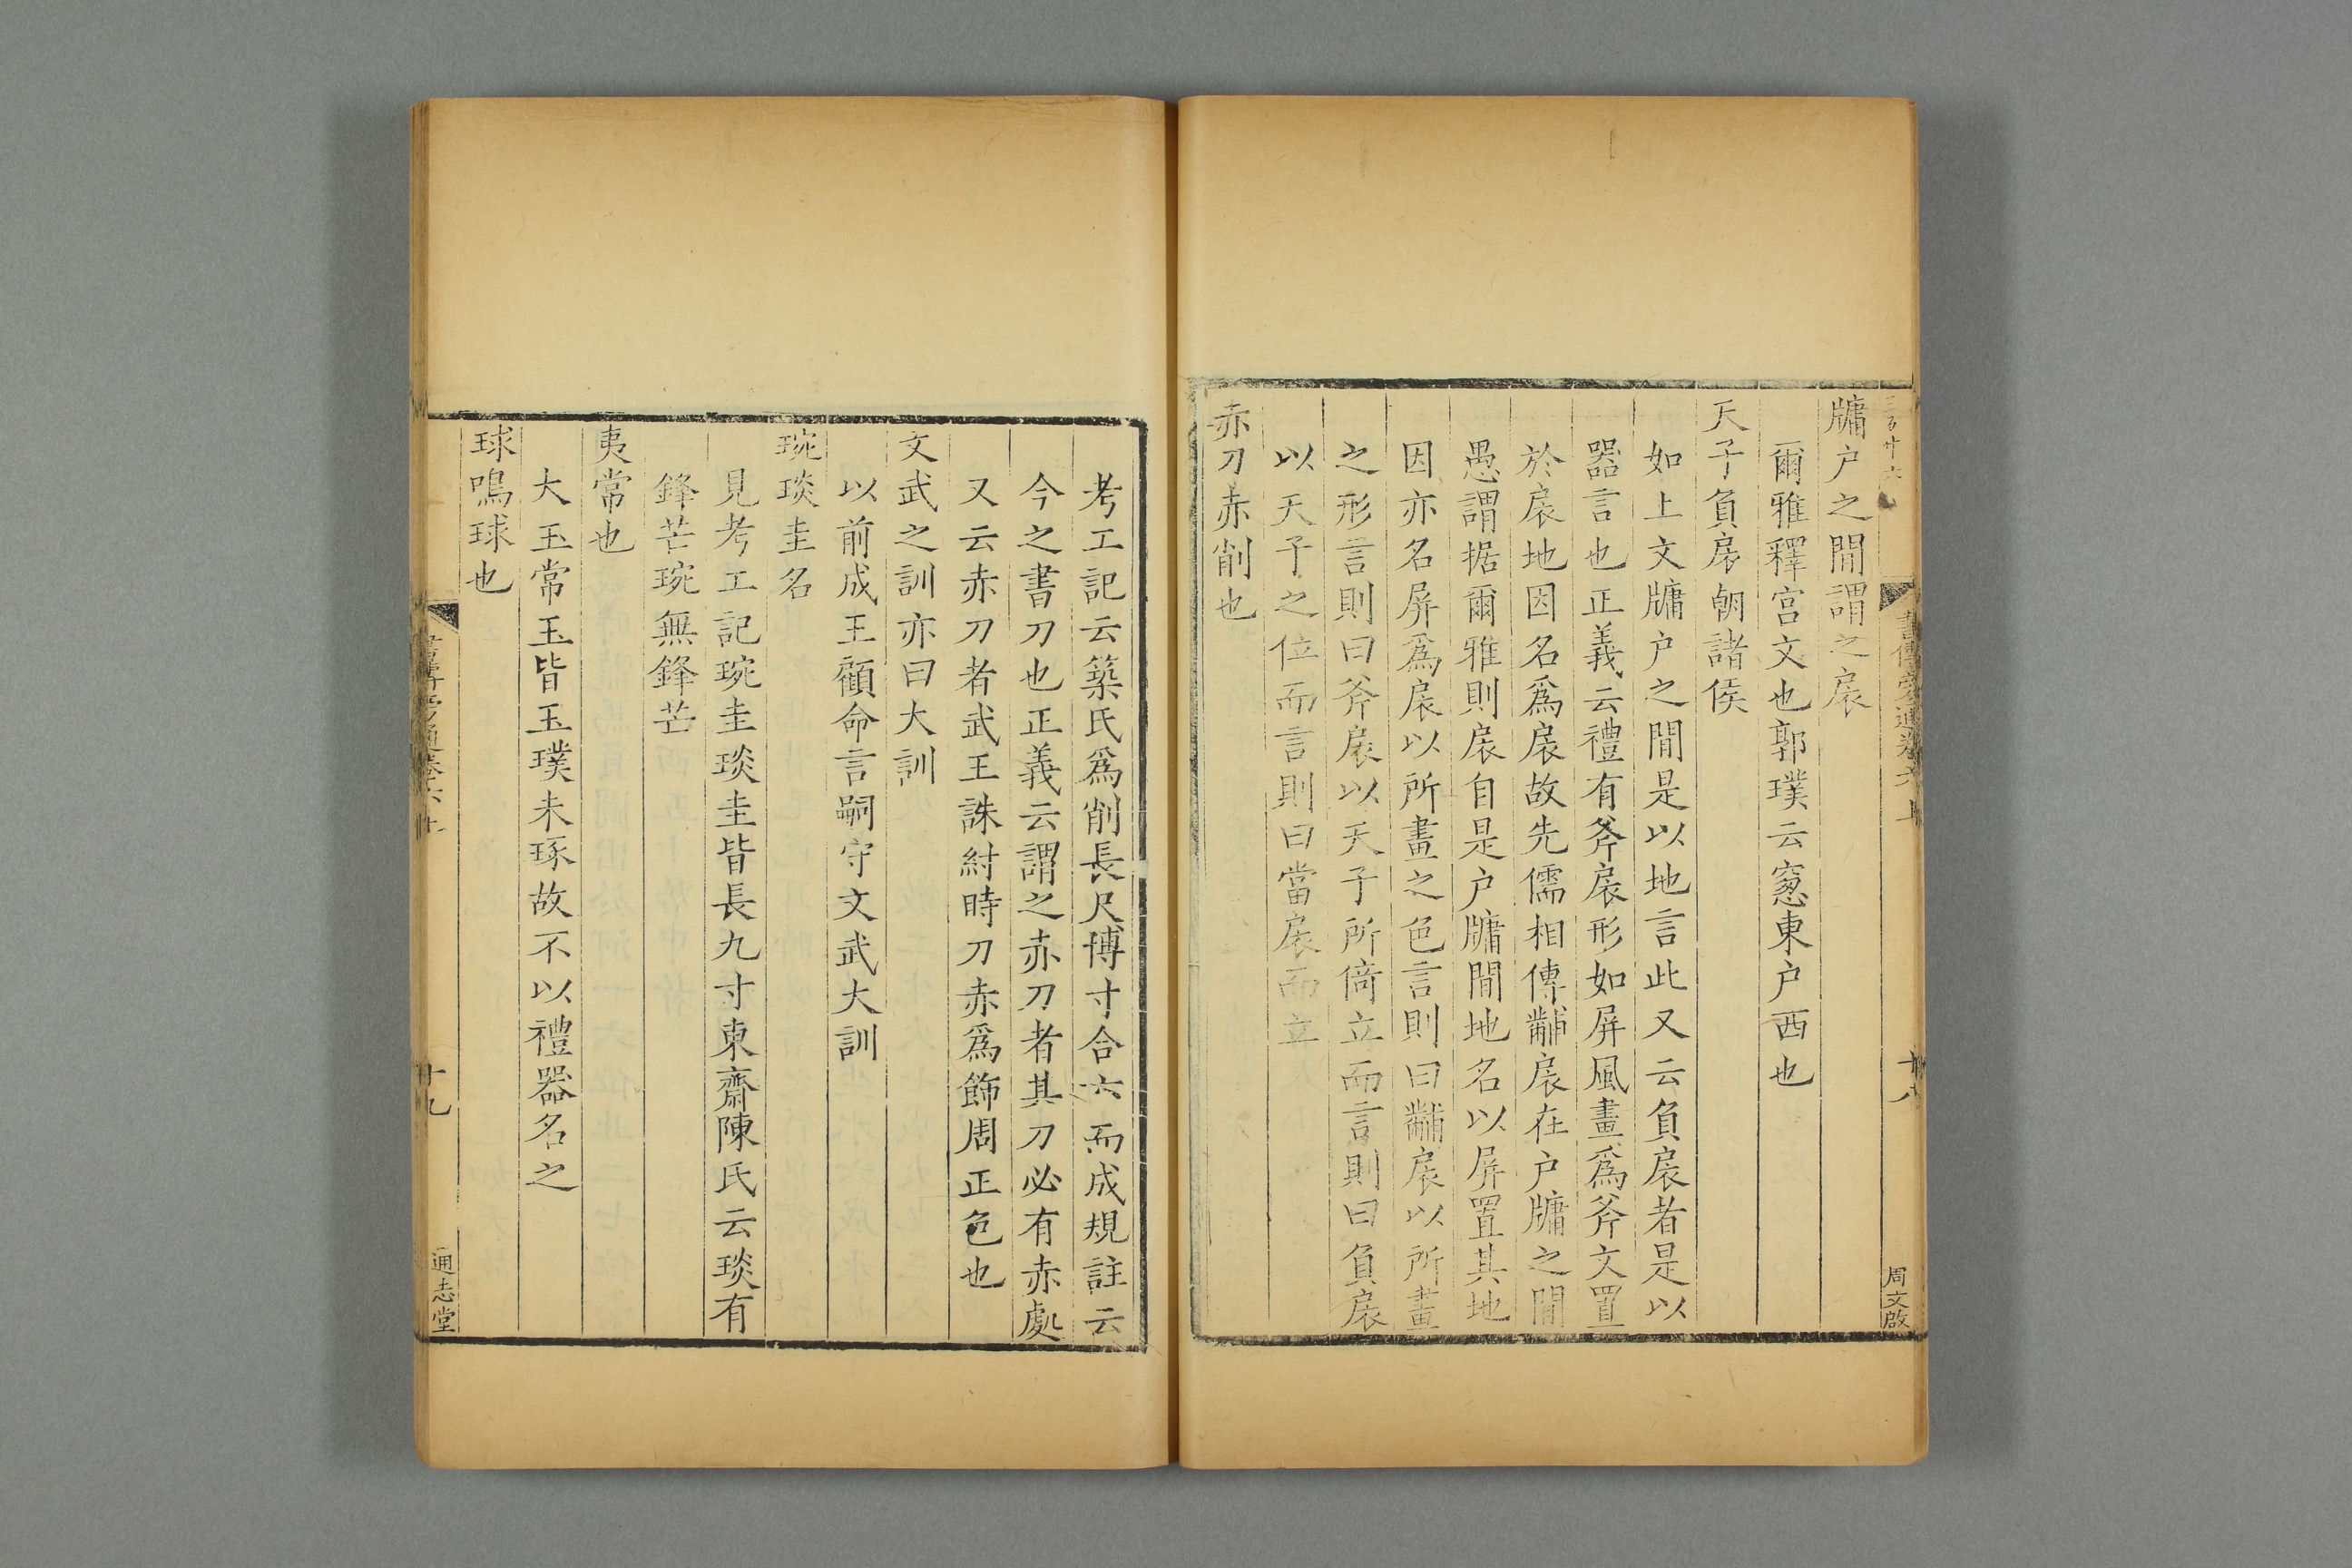 書傳旁通卷六上
十八
周文啟
牗户之間謂之扆
爾雅釋宫文也郭璞云窻東户西也
天子負扆朝諸侯
如上文牗户之間是以地言此又云負扆者是以
器言也正義云禮有斧扆形如屏風畫爲斧文置
於扆地因名爲扆故先儒相傳黼扆在户牗之間
愚謂据爾雅則扆自是户牗間地名以屏置其地
因亦名屏爲扆以所畫之色言則曰黼扆以所畫
之形言則曰斧扆以天子所倚立而言則曰負扆
以天子之位而言則曰當扆而立
赤刀赤削也
考工記云築氏爲削長尺博寸合六而成規註云
今之書刀也正義云謂之赤刀者其刀必有赤處
又云赤刀者武王誅紂時刀赤爲飾周正色也
文武之訓亦曰大訓
以前成王顧命言嗣守文武大訓
琬琰圭名
見考工記琬圭琰圭皆長九寸東齋陳氏云琰有
鋒芒琬無鋒芒
夷常也
大玉常玉皆玉璞未琢故不以禮器名之
球鳴球也
書傳旁通卷六上
十九
通志堂